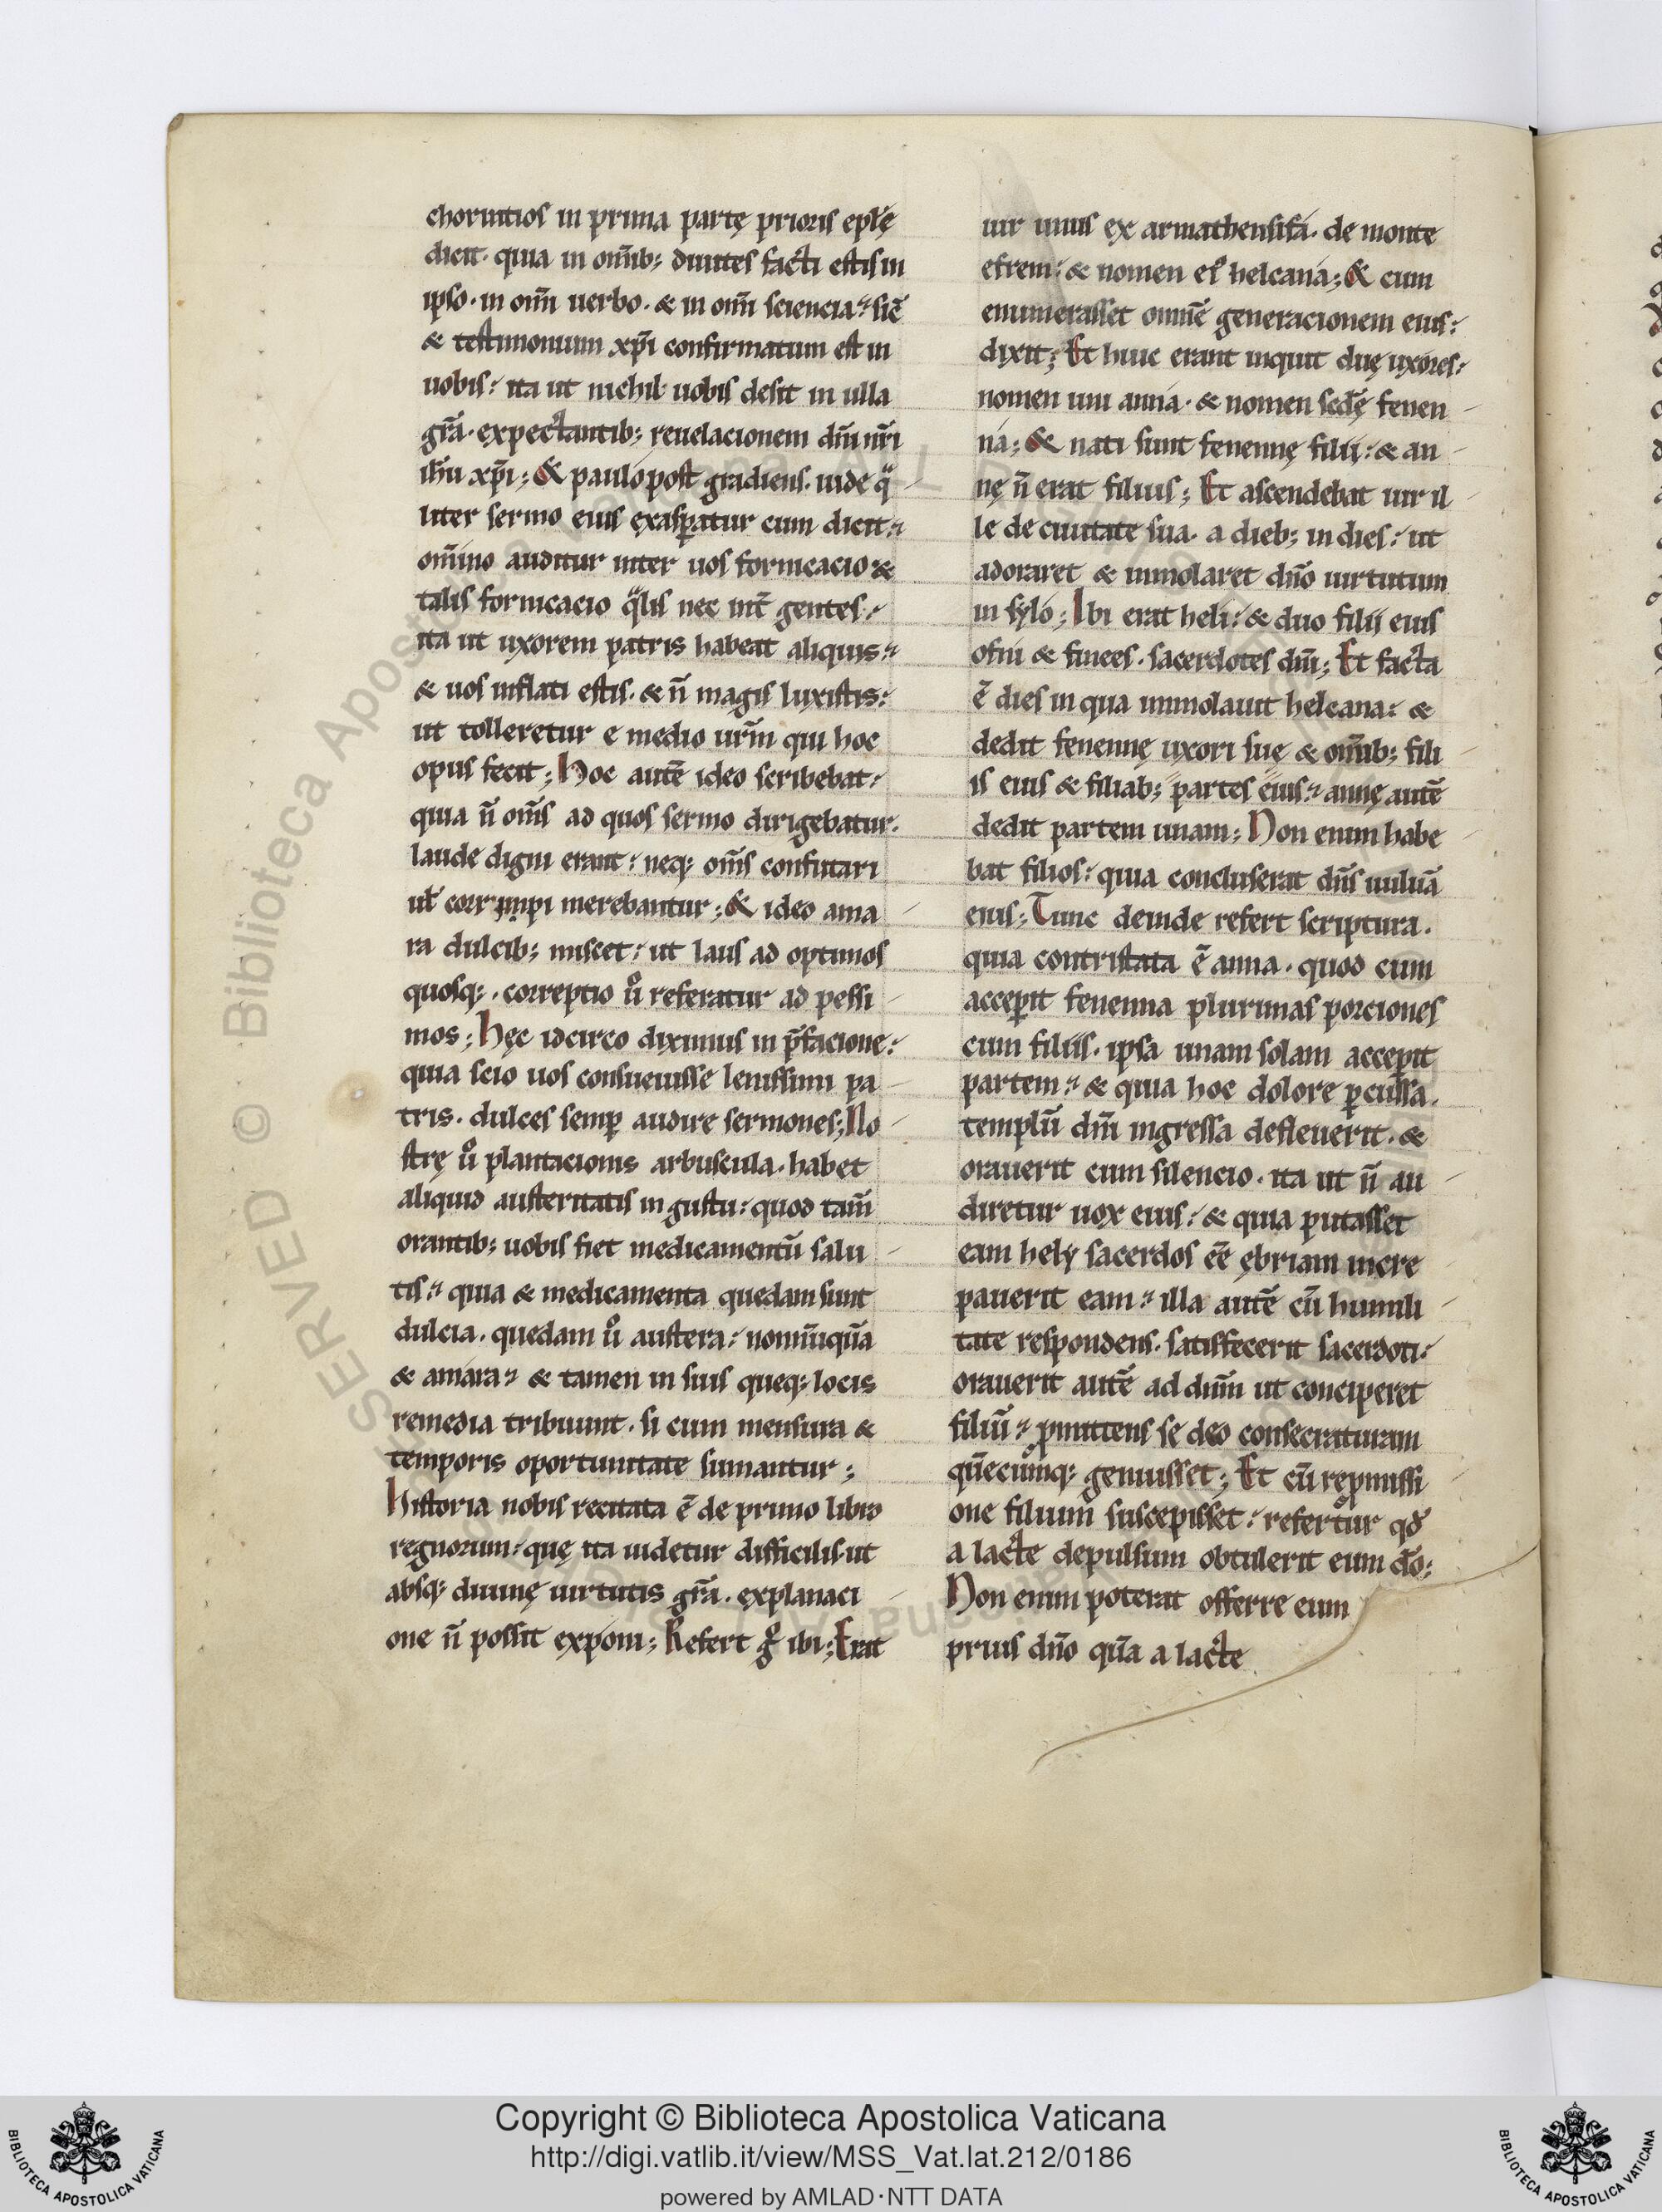 chorintios in prima partę prioris epl̃ę
dicit· quia in om̃ib; diuites facti estis in
ipso· in om̃i uerbo· & in om̃i sciencia: sic̃
& testimonium xp̃i confirmatum est in
uobis: ita ut nichil uobis desit in ulla
gr̃a· expectantib; reuelacionem dñi nr̃i
ih̃u xp̃i; & paulo post gradiens· uide qͣ
liter sermo eius exasꝑatur cum dicit:
om̃ino auditur inter uos fornicacio &
talis fornicacio qͣlis nec int̃ gentes:
ita ut uxorem patris habeat aliquis:
& uos inflati estis· & ñ magis luxistis:
ut tolleretur e medio ur̃m qui hoc
opus fecit; Hoc autẽ ideo scribebat:
quia ñ om̃s ad quos sermo dirigebatur·
laude digni erant: neq; om̃s confutari
ul̃ corrumpi merebantur; & ideo ama
ra dulcib; miscet: ut laus ad optimos
quosq;· correptio uͦ referatur ad pessi
mos; Hęc idcirco diximus in p̃facione:
quia scio uos consueuisse lenissimi pa
tris· dulces semꝑ audire sermones; No
strę uͦ plantacionis arbuscula· habet
aliquid austeritatis in gustu: quod tam̃
orantib; uobis fiet medicamentũ salu
tis: quia & medicamenta quedam sunt
dulcia· quedam uͦ austera: nonnũquã
& amara: & tamen in suis queq; locis
remedia tribuunt· si cum mensura &
temporis oportunitate sumantur;
Historia nobis recitata ẽ de primo libro
regnorum: quę ita uidetur difficilis ut
absq; diuinę uirtutis gr̃a· explanaci
one ñ possit exponi; Refert gͦ ibi; Erat
uir unus ex armathensifa· de monte
efrem: & nomen ei᷒ helcana; & cum
enumerasset omnẽ generacionem eius:
dixit; Et huic erant inquit duę uxores:
nomen uni anna· & nomen sc̃dę fenen
na; & nati sunt fenennę filii: & an
nę ñ erat filius; Et ascendebat uir il
le de ciuitate sua· a dieb; in dies: ut
adoraret & immolaret dño uirtutum
in sylo; Ibi erat heli: & duo filii eius
ofni & finees· sacerdotes dñi; Et facta
ẽ dies in qua immolauit helcana: &
dedit fenennę uxori suę & om̃ib; fili
is eius & filiab; partes eius: annę autẽ
dedit partem unam; Non enim habe
bat filios: quia concluserat dñs uuluã
eius; Tunc deinde refert scriptura·
quia contristata ẽ anna· quod cum
acceꝑit fenenna plurimas porciones
cum filiis· ipsa unam solam acceꝑit
partem: & quia hoc dolore ꝑcussa·
templũ dñi ingressa defleuerit· &
orauerit cum silencio· ita ut ñ au
diretur uox eius: & quia putasset
eam hely sacerdos eẽ ębriam incre
pauerit eam: illa autẽ cũ humili
tate respondens· satisfecerit sacerdoti:
orauerit autẽ ad dñm ut conciperet
filiũ: ꝓmittens se deo consecraturam
quẽcumq; genuisset; Et cũ reꝓmissi
one filium suscepisset: refertur qď
a lacte depulsum obtulerit eum dõ;
Non enim poterat offerre eum
prius dño quã a lacte
Copyright © Biblioteca Apostolica Vaticana
http://digi.vatlib.it/view/MSS_Vat.lat.212/0186
powered by AMLAD·NTT DATA
BIBLIOTECA APOSTOLICA VATICANA
BIBLIOTECA APOSTOLICA VATICANA